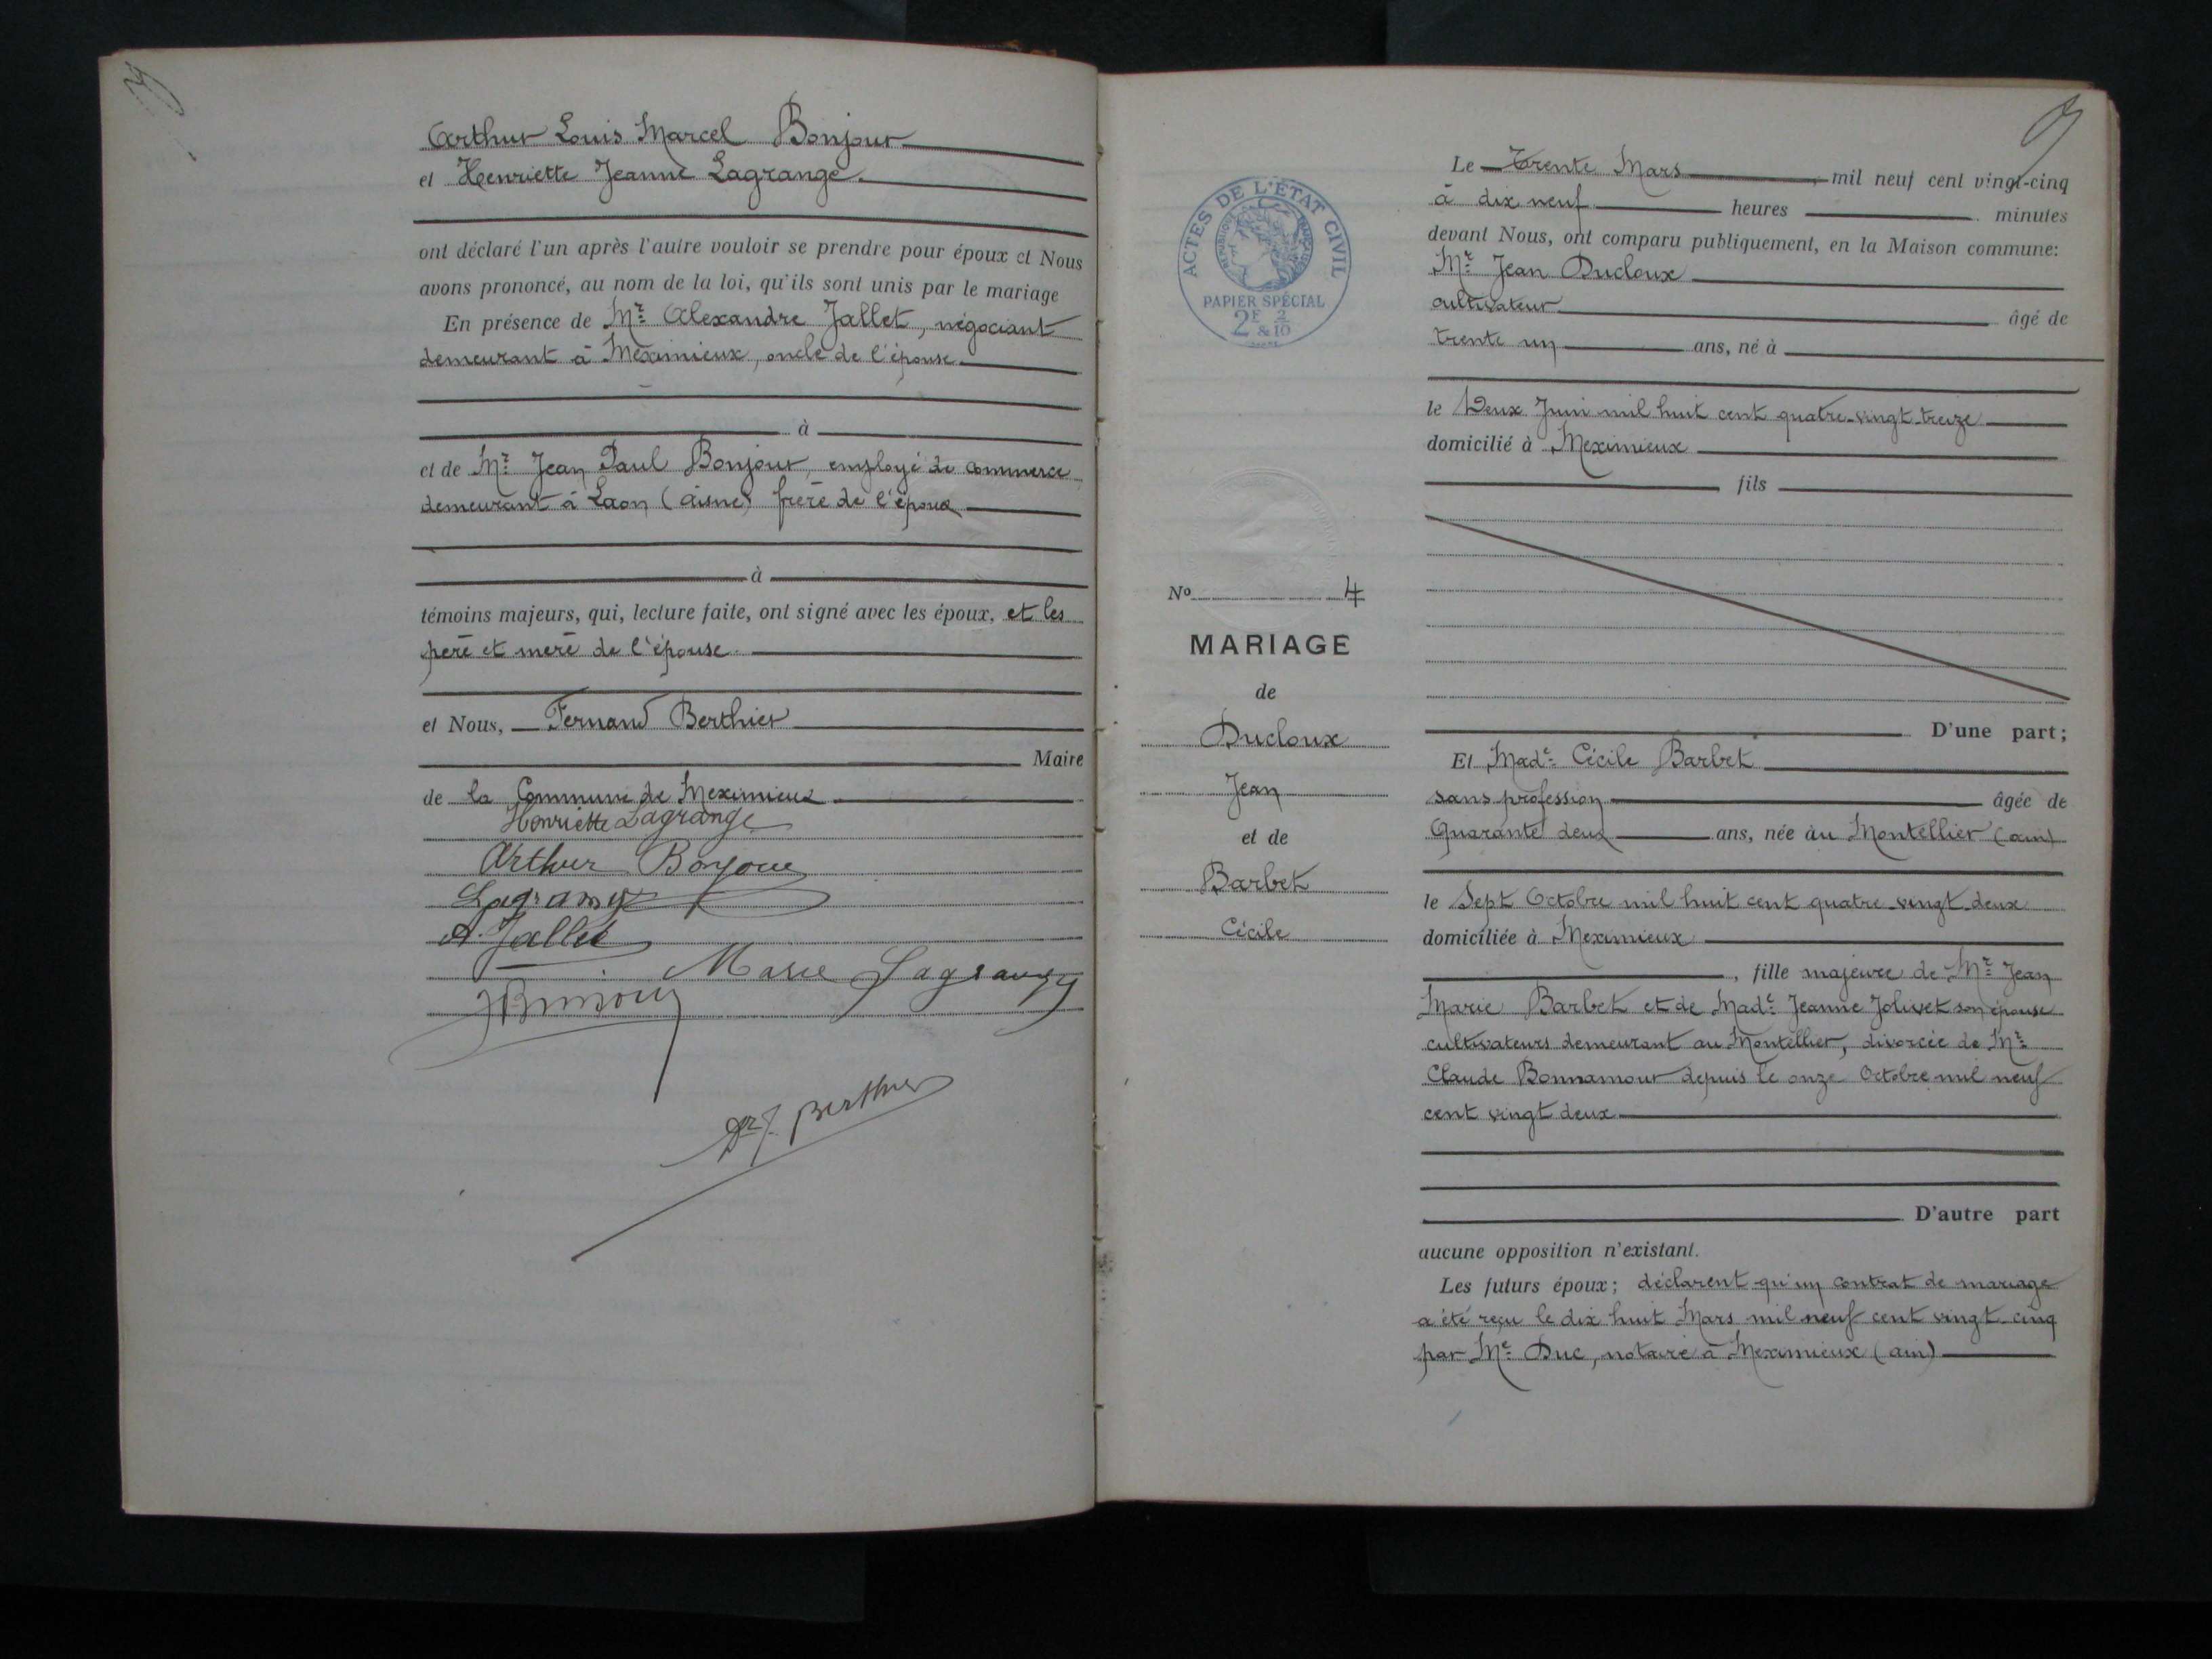 Arthur Louis Marcel Bonjour
et Henriette Jeanne Lagrange.
ont déclaré l'un après l'autre vouloir se prendre pour époux et Nous
avons prononcé, au nom de la loi, qu'ils sont unis par le mariage
En présence de Mr Alexandre Jallet, négociant
demeurant à Meximieux, oncle de l'épouse
à
et de Mr Jean Paul Bonjour, employé de commerce
demeurant à Laon (Aisne) frère de l'époux
à
témoins majeurs, qui, lecture faite, ont signé avec les époux, et les
père et mère de l'épouse.
et Nous, Fernand Berthier
Maire
de la Commune de Meximieux
Henriette Lagrange
Arthur Bonjour
Lagrange
A. Jallet
Marie Lagrange
Dr F. Berthier
ACTES DE L'ÉTAT CIVIL
RÉPUBLIQUE FRANÇAISE
PAPIER SPÉCIAL
2F & 2/10
No 4
MARIAGE
de
Ducloux
Jean
et de
Barbet
Cécile
Le Trente Mars, mil neuf cent vingt-cinq
à dix neuf heures minutes
devant Nous, ont comparu publiquement, en la Maison commune:
Mr Jean Ducloux
cultivateur âgé de
trente un ans, né à
le Deux Juin mil huit cent quatre-vingt-treize
domicilié à Meximieux
fils
D'une part;
Et Made Cécile Barbet
sans profession âgée de
Quarante deux ans, née au Montellier (ain)
le Sept Octobre mil huit cent quatre-vingt-deux
domiciliée à Meximieux
, fille majeure de Mr Jean
Marie Barbet et de Made Jeanne Jolivet son épouse
cultivateurs demeurant au Montellier, divorcée de Mr
Claude Bonnamour depuis le onze Octobre mil neuf
cent vingt deux
D'autre part
aucune opposition n'existant.
Les futurs époux; déclarent qu'un contrat de mariage
a été reçu le dix huit Mars mil neuf cent vingt-cinq
par Me Duc, notaire à Meximieux (ain)